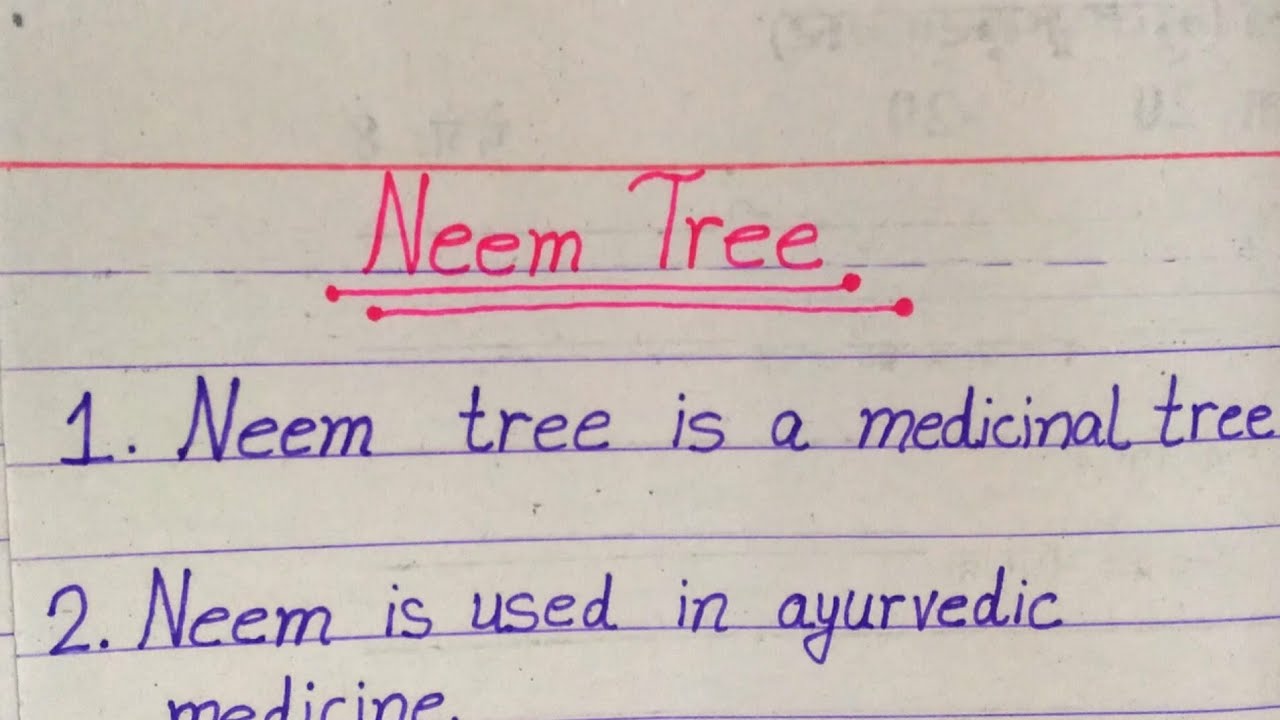 Neem Tree
1. Neem tree is a medicinal tree
2. Neem is used in ayurvedic
medicine.